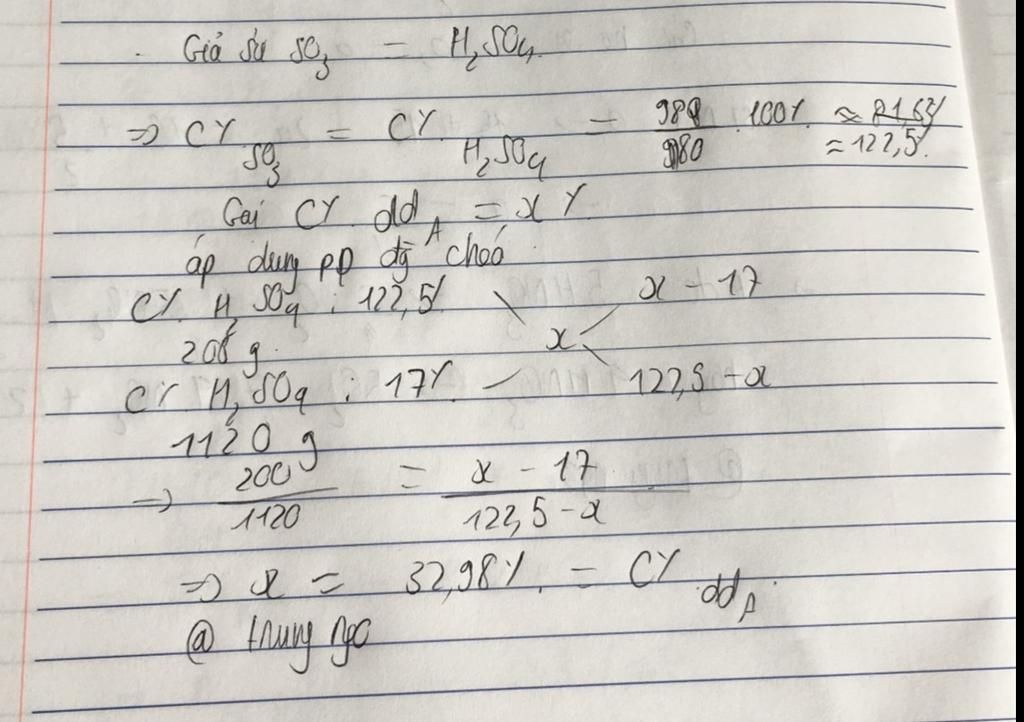 Giả sử SO3 = H2SO4
=> C% SO3 = C% H2SO4 = 98 / 80 . 100% ≈ 81,63% ≈ 122,5%
Gọi C% ddA = x%
áp dụng pp đg chéo
C% H2SO4 : 122,5% x - 17
200 g x
C% H2SO4 : 17% 122,5 - x
1120 g
=> 200 / 1120 = x - 17 / 122,5 - x
=> x = 32,98% = C% ddA
@ trung ngo